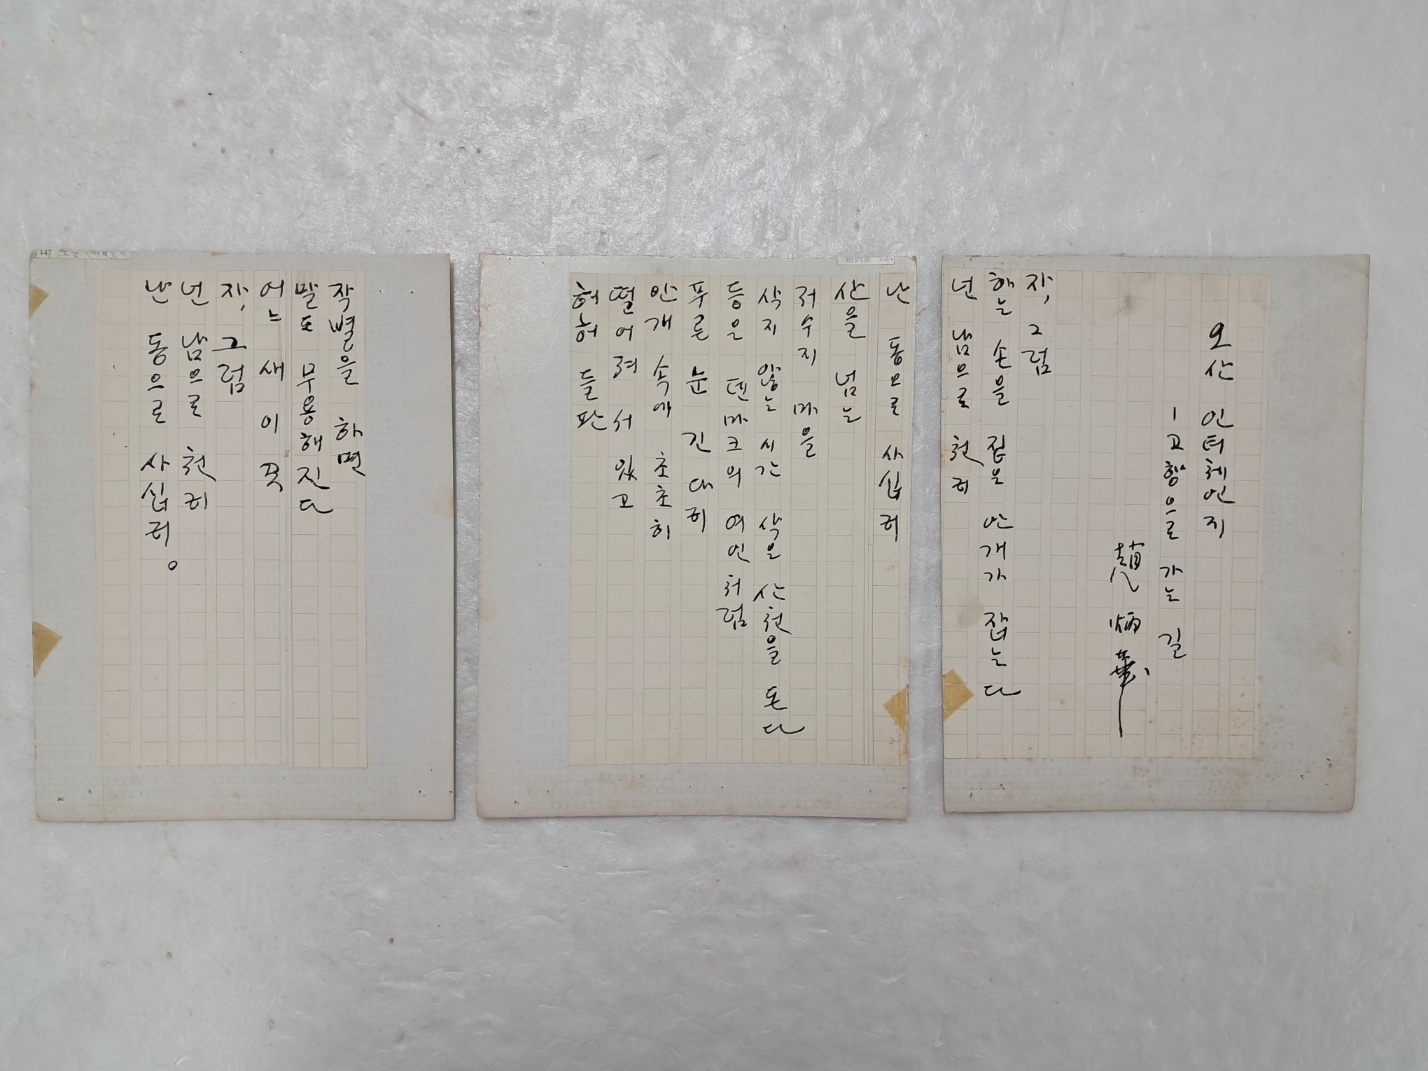 오산 인터체인지
-고향으로 가는 길
趙 炳 華
자, 그럼
하는 손을 짚은 안개가 잡는다
넌 남으로 천리
난 동으로 사십리
산을 넘는
저수지 마을
삭지 않는 시간 삭은 산천을 돈다
등은 덴마크의 여인처럼
푸른 눈 긴 다리
안개 속에 초초히
떨어져 서 있고
허허 들판
작별을 하면
말도 무용해진다
어느 새 이 곳
자, 그럼
넌 남으로 천리
난 동으로 사십리。